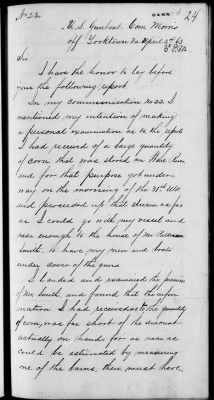 No 23.
24
U.S. Gunboat Com Morris
off Yorktown Va April 2nd 63
6 P.M.
Sir
I have the honor to lay before
you the following report
In my communication No 22. I
mentioned my intention of making
a personal examination as to the reports
I had received of a large quantity
of corn that was stored on Ware River
and for that purpose got under
way on the morning of the 31st Ulto
and proceeded up that stream as far
as I could go with my vessel and
near enough to the house of Mr
Smith. to have my men and boats
under cover of the guns
I landed and examined the premises
of Mr Smith, and found that the infor
mation I had received as to the quantity
of corn, was far short of the amount
actually on hand for as near as
could be estimated by measuring
one of the barns, there must have